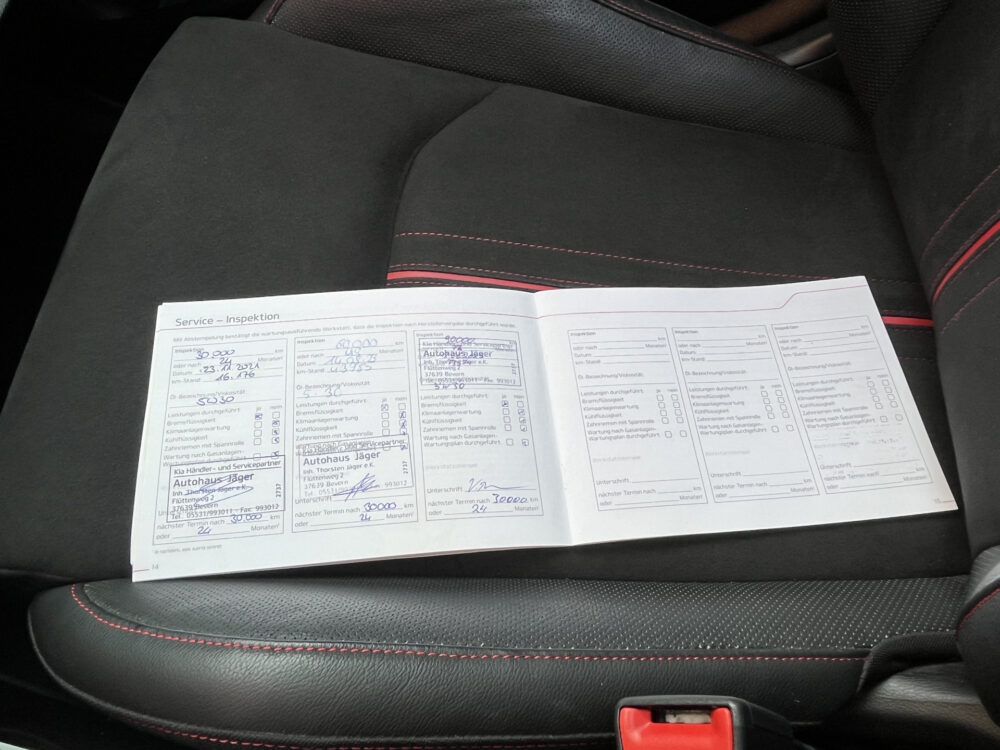 Service – Inspektion
Mit Abstempelung bestätigt die wartungsausführende Werkstatt, dass die Inspektion nach Herstellervorgabe durchgeführt wurde.
Inspektion
30 000 km
oder nach 24 Monaten
Datum 23.11.2021
km-Stand 16.176
Öl-Bezeichnung/Viskosität
5W30
Leistungen durchgeführt: ja nein
Bremsflüssigkeit
Klimaanlagenwartung
Kühlflüssigkeit
Zahnriemen mit Spannrolle
Wartung nach Gasanlagen-
Kia Händler- und Servicepartner
Autohaus Jäger
Inh. Thorsten Jäger e.K.
Flüttenweg 2
37639 Bevern
Tel. 05531/993011 - Fax 993012
2737
nächster Termin nach 30 000 km
oder 24 Monaten
14
Inspektion
60,000 km
oder nach Monaten
Datum
km-Stand
Öl-Bezeichnung/Viskosität
Leistungen durchgeführt: ja nein
Bremsflüssigkeit
Klimaanlagenwartung
Kühlflüssigkeit
Zahnriemen mit Spannrolle
Kia Händler- und Servicepartner
Autohaus Jäger
Inh. Thorsten Jäger e.K.
Flüttenweg 2
37639 Bevern
Tel. 05531/ 993012
2737
Unterschrift
nächster Termin nach 30000 km
oder 24 Monaten
Kia Händler- und Servicepartner
Autohaus Jäger
Inh. Jäger e.K.
Flüttenweg 2
37639 Bevern
Tel. 05531/993011 - Fax 993012
Leistungen durchgeführt: ja nein
Bremsflüssigkeit
Klimaanlagenwartung
Kühlflüssigkeit
Zahnriemen mit Spannrolle
Wartung nach Gasanlagen-
Wartungsplan durchgeführt
Unterschrift
nächster Termin nach 30000 km
oder 24 Monaten
Inspektion
km
oder nach Monaten
Datum
km-Stand
Öl-Bezeichnung/Viskosität
Leistungen durchgeführt: ja nein
Bremsflüssigkeit
Klimaanlagenwartung
Kühlflüssigkeit
Zahnriemen mit Spannrolle
Wartung nach Gasanlagen-
Wartungsplan durchgeführt
Unterschrift
nächster Termin nach km
oder Monaten
Inspektion
km
oder nach Monaten
Datum
km-Stand
Öl-Bezeichnung/Viskosität
Leistungen durchgeführt: ja nein
Bremsflüssigkeit
Klimaanlagenwartung
Kühlflüssigkeit
Zahnriemen mit Spannrolle
Wartung nach Gasanlagen-
Wartungsplan durchgeführt
Unterschrift
nächster Termin nach km
oder Monaten
Inspektion
km
oder nach Monaten
Datum
km-Stand
Öl-Bezeichnung/Viskosität
Leistungen durchgeführt: ja nein
Bremsflüssigkeit
Klimaanlagenwartung
Kühlflüssigkeit
Zahnriemen mit Spannrolle
Wartung nach Gasanlagen-
Wartungsplan durchgeführt
Unterschrift
nächster Termin nach km
oder Monaten